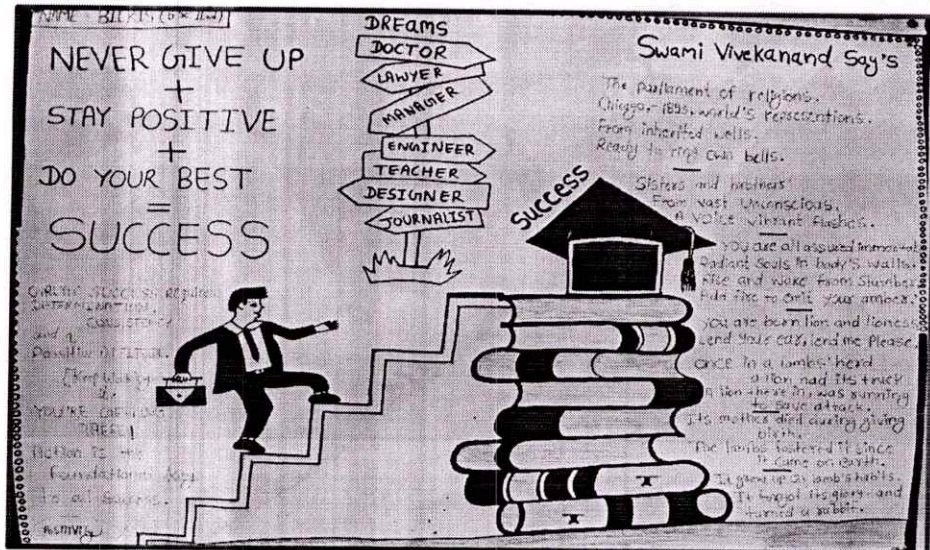 NAME - BILKIS
NEVER GIVE UP
+
STAY POSITIVE
+
DO YOUR BEST
=
SUCCESS
SUCCESS REQUIRES
DETERMINATION,
CONSISTENCY
and a
POSITIVE ATTITUDE.
YOU'RE GETTING
THERE!
Action is the
foundational
to all success.
Positivity
DREAMS
DOCTOR
LAWYER
MANAGER
ENGINEER
TEACHER
DESIGNER
JOURNALIST
Success
Swami Vivekanand Say's
The parliament of religions.
world's
From inherited wells.
Ready to ring own bells.
Sisters and brothers
From vast Unconscious,
A voice vibrant flushes.
You are all assured immortal
Radiant souls in body's walls.
Rise and wake from slumber
Add fire to your
You are born lion and lioness
Lend your ear, lend me please.
Once in a lambs' herd
a lion had its truck
a lion there in, was running
to save attack.
Its mother died during giving
birth.
The lambs fostered it since
it came on Earth.
It grew up in lamb's habits.
It forgot its glory and
turned a rabbit.